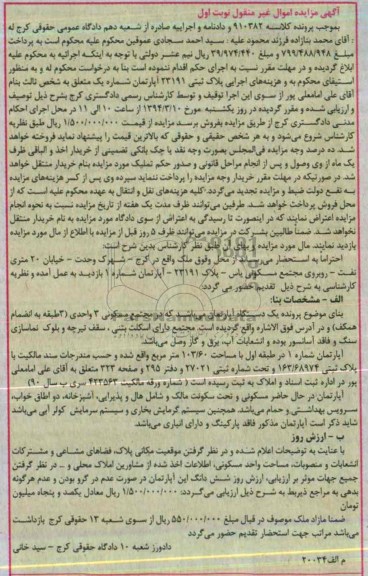 آگهی مزایده اموال غیر منقول نوبت اول
بموجب پرونده کلاسه ۹۱۰۳۸۲ و دادنامه و اجراییه صادره از شعبه دهم دادگاه عمومی حقوقی کرج له
: آقای محمد بناززاده فرزند محمود علیه : سید احمد سجادی عموقین محکوم علیه محکوم است به پرداخت
مبلغ ۷۹۹/۴۸۸/۹۴۸ و مبلغ ۳۹/۹۷۴/۴۴۰ ریال نیم عشر دولتی با توجه به اینکه اجرائیه به محکوم علیه
ابلاغ گردیده و در مهلت مقرر نسبت به اجرای حکم اقدام ننموده است بنا به درخواست محکوم له و به منظور
استیفای محکوم به و هزینه‌های اجرایی پلاک ثبتی ۲۳۱۹۱ آپارتمان شماره یک متعلق به شخص ثالث بنام
آقای علی امامعلی پور از سوی این اجرا توقیف و توسط کارشناس رسمی دادگستری کرج بشرح ذیل توصیف
و ارزیابی شده و مقرر گردیده در روز یکشنبه مورخ ۱۳۹۴/۳/۱۰ از ساعت ۱۰ الی ۱۱ در محل اجرای احکام
مدنی دادگستری کرج از طریق مزایده بفروش برسد مزایده از قیمت ۱/۵۰۰/۰۰۰/۰۰۰ ریال طبق نظریه
کارشناس شروع می‌شود و به هر شخص حقیقی و حقوقی که بالاترین قیمت را پیشنهاد نماید فروخته خواهد
شد. ده درصد وجه مزایده فی‌المجلس بصورت وجه نقد یا چک بانکی تضمینی از خریدار اخذ و الباقی ظرف
یک ماه از وی وصول و پس از انجام مراحل قانونی و صدور حکم تملیک مورد مزایده بنام خریدار منتقل خواهد
شد. در صورتیکه در مهلت مقرر خریدار وجه مزایده را پرداخت ننماید سپرده وی پس از کسر هزینه‌های مزایده
به نفع دولت ضبط و مزایده تجدید می‌گردد. کلیه هزینه‌های نقل و انتقال به عهده محکوم علیه است که از
محل فروش پرداخت خواهد شد. طرفین می‌توانند ظرف مدت یک هفته از تاریخ مزایده نسبت به نحوه انجام
مزایده اعتراض نمایند که در اینصورت تا رسیدگی به اعتراض از سوی دادگاه مورد مزایده به نام خریدار منتقل
نخواهد شد. ضمنا طالبین بشرکت در مزایده می‌توانند ظرف ۵ روز قبل از مزایده با اطلاع از مال مورد مزایده
بازدید نمایند. مال مورد مزایده و بهای آن طبق نظر کارشناس بدین شرح است:
احتراما به استحضار می‌رساند از محل وقوع ملک واقع در کرج – شهرک وحدت – خیابان ۲۰ متری
نفت – روبروی مجتمع مسکونی یاس – پلاک ۲۳۱۹۱ – آپارتمان شماره ۱ بازدید به عمل آمده و نظریه
کارشناسی به شرح ذیل تقدیم حضور می گردد:
الف – مشخصات بنا:
بنای موضوع پرونده یک دستگاه آپارتمان می‌باشد که در مجتمع مسکونی ۳ واحدی (۳طبقه به انضمام
همکف) و در آدرس فوق الاشاره واقع گردیده است. مجتمع دارای اسکلت بتنی ، سقف تیرچه و بلوک نماسازی
سنگ و فاقد آسانسور بوده و انشعابات آب، برق و گاز وصل می‌باشد.
آپارتمان شماره ۱ در طبقه اول با مساحت ۱۰۳/۶۰ متر مربع واقع شده و حسب مندرجات سند مالکیت با
پلاک ثبتی ۱۶۳/۶۸۹۷۴ و تحت شماره ثبتی ۲۷۰۲۱ و دفتر ۲۹۵ و صفحه ۳۲۳ متعلق به آقای علی امامعلی
پور در اداره ثبت اسناد و املاک به ثبت رسیده است ( شماره ورقه مالکیت ۴۲۳۵۶۳ سری ب سال ۹۰)
آپارتمان در حال حاضر مسکونی و تحت سکونت مالک و شامل هال و پذیرایی، آشپزخانه، دو اطاق خواب،
سرویس بهداشتی و حمام می‌باشد. همچنین سیستم گرمایش بخاری و سیستم سرمایش کولر آبی می‌باشد
شاید ذکر است آپارتمان مذکور فاقد پارکینگ و دارای انباری می‌باشد.
ب – ارزش روز
با عنایت به توضیحات اعلام شده و در نظر گرفتن موقعیت مکانی پلاک، فضاهای مشاعی و مشترکات
انشعابات و منصوبات، مساحت واحد مسکونی، اطلاعات اخذ شده از مشاورین املاک محلی و .. در نظر گرفتن
جمیع جهات موثر بر ارزیابی، ارزش روز شش دانگ این آپارتمان در صورت عدم در گرو بودن و عدم هرگونه
بدهی به مراجع ذیربط به شرح ذیل ارزیابی می‌گردد: ۱/۵۰۰/۰۰۰/۰۰۰ ریال معادل یکصد و پنجاه میلیون
تومان
ضمنا مازاد ملک موصوف در قبال مبلغ ۵۵۰/۰۰۰/۰۰۰ ریال از سوی شعبه ۱۳ حقوقی کرج بازداشت
می‌باشد مراتب جهت استحضار تقدیم حضور می‌گردد.
دادورز شعبه ۱۰ دادگاه حقوقی کرج – سید خانی
م الف۲۰۰۳۴